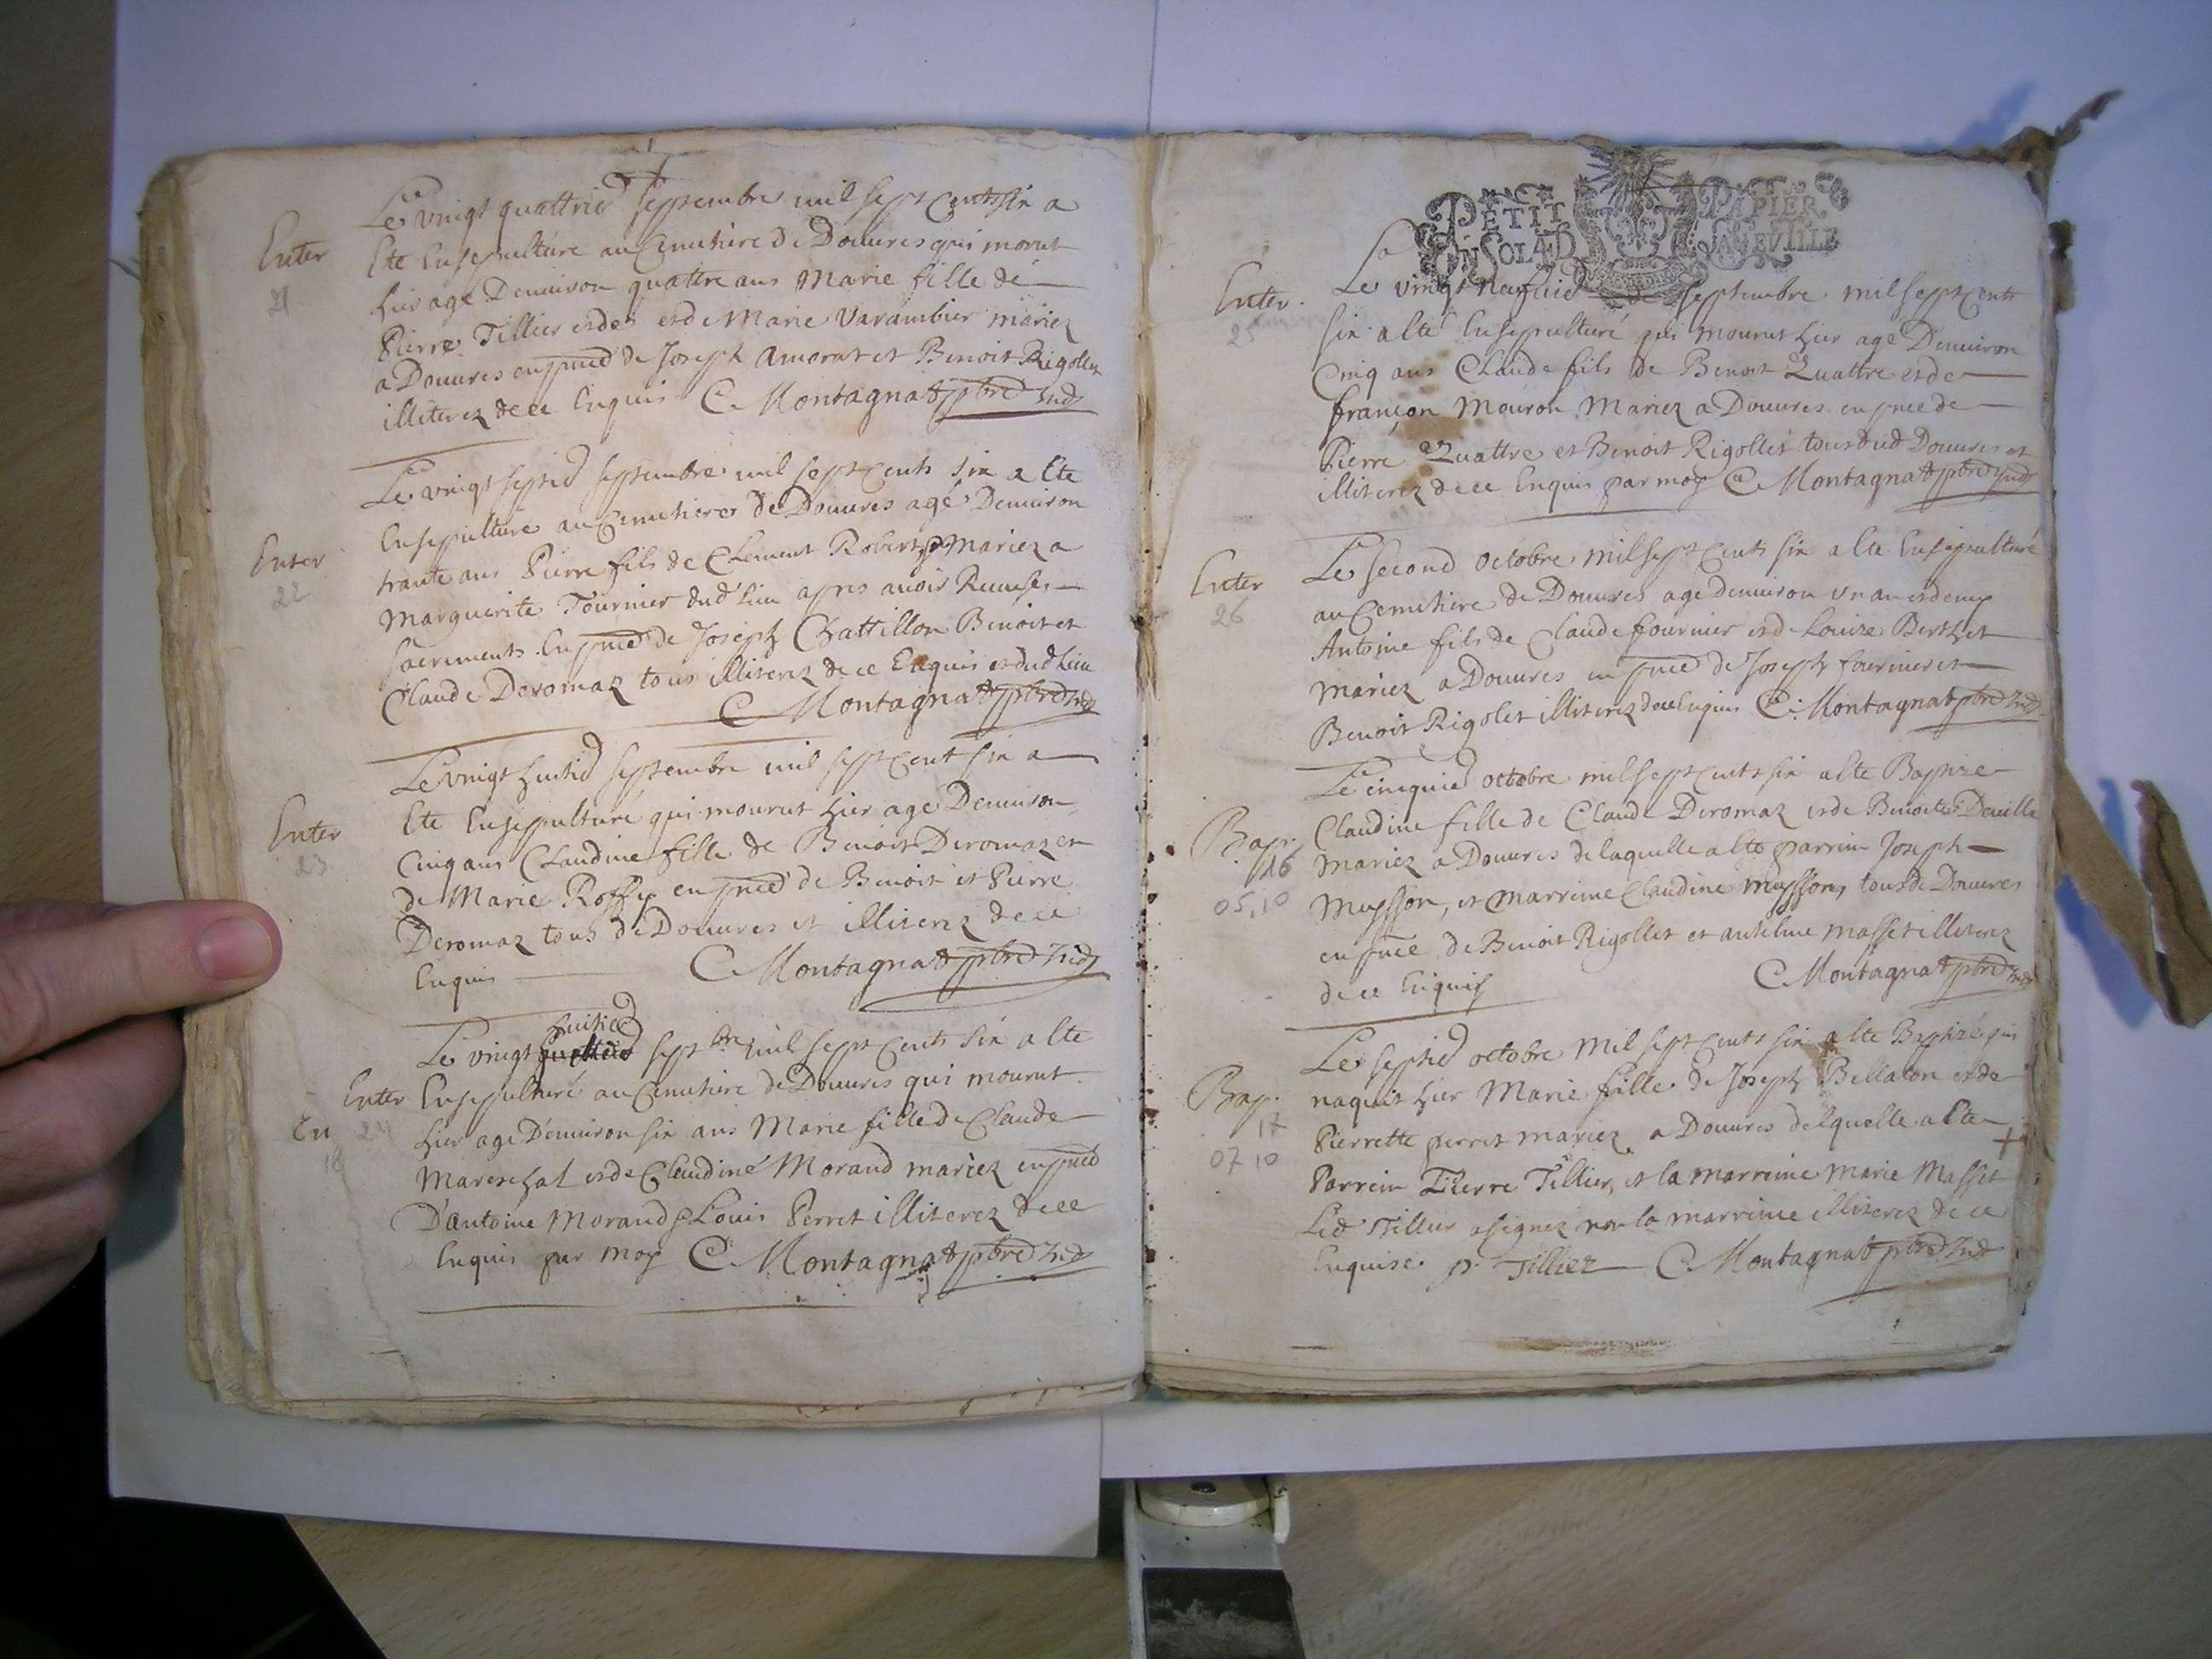 Le vingt quattrie septembre mil sept cents six a
Enter
21
Ete Ensepulture au Cemetiere de Douures qui morut
hier age Denuiron quattre ans Marie fille de
Pierre Tillier et de Marie Varambier mariez
a Douures en pnce de Joseph Amorat et Benoit Rigollet
illiterez de ce Enquis C. Montagnat ptre
Le vingt septie septembre mil sept cents six a Ete
Ensepulture au Cemetiere de Douures agé Denuiron
Enter
22
trante ans Pierre fils de Clement Robert & Mariez a
Marguerite Tournier dud lieu apres auoir Receu ses
sacrements En pnce de Joseph Chattillon Benoit et
Claude Deromaz tous illiterez de ce Enquis et dud lieu
C Montagnat ptre
Le vingt huitie septembre mil sept cent six a
Enter
23
Ete Ensepulturé qui mourut hier age Denuiron
Cinq ans Claudine fille de Benoit Deromaz et
de Marie Roffy en pnce de Benoit et Pierre
Deromaz tous de Douures et illiterez de ce
Enquis C Montagnat ptre
huitie
Le vingt septbre mil sept Cents Six a Ete
Enter
24
Ensepulturé au Cemetiere de Douures qui mourut
En
18
hier age D'enuiron six ans Marie fille de Claude
Mareschal et de Claudine Morand mariez en pnce
D'antoine Morand & Louis Perret illiterez de ce
Enquis par moy C. Montagnat ptre
PETIT PAPIER
Le vingt neufuie de septembre mil sept cents
Enter.
25
six a Eté Ensepulturé qui mourut hier age Denuiron
Cinq ans Claude fils de Benoit Quattre et de
françon Mouron Mariez a Douures en pnce de
Pierre Quattre et Benoit Rigollet tous dud Douures et
illiterez de ce Enquis par moy C Montagnat ptre
Le second octobre mil sept Cents six a Ete Ensepulturé
Enter
26
au Cemetiere de Douures age denuiron un an et demy
Antoine fils de Claude fournier et de Louize Berthet
mariez a Douures en pnce de Joseph fournier et
Benoit Rigolet illiterez de ce Enquis C: Montagnat ptre
Le cinquie octobre mil sept cents six a Ete Baptize
Bap.
16
05,10
Claudine fille de Claude Deromaz et de Benoite Deuille
mariez a Douures de laquelle a Ete parrein Joseph
Muysson, et marreine Claudine muysson, tous de Douures
en pnce de Benoit Rigollet et antelme Masset illiterez
de ce Enquis C Montagnat ptre
Le septie octobre mil sept cents six a Ete Baptizé qui
Bap.
17
07 10
naquit hier Marie fille de Joseph Bellaton et de
Pierrette perret mariez a Douures delquelle a Ete +
Parrein Pierre Tillier, et la marreine Marie Masset
Led Tillier a signez non la marreine illiterez de ce
Enquise. p. Tillier C Montagnat ptre